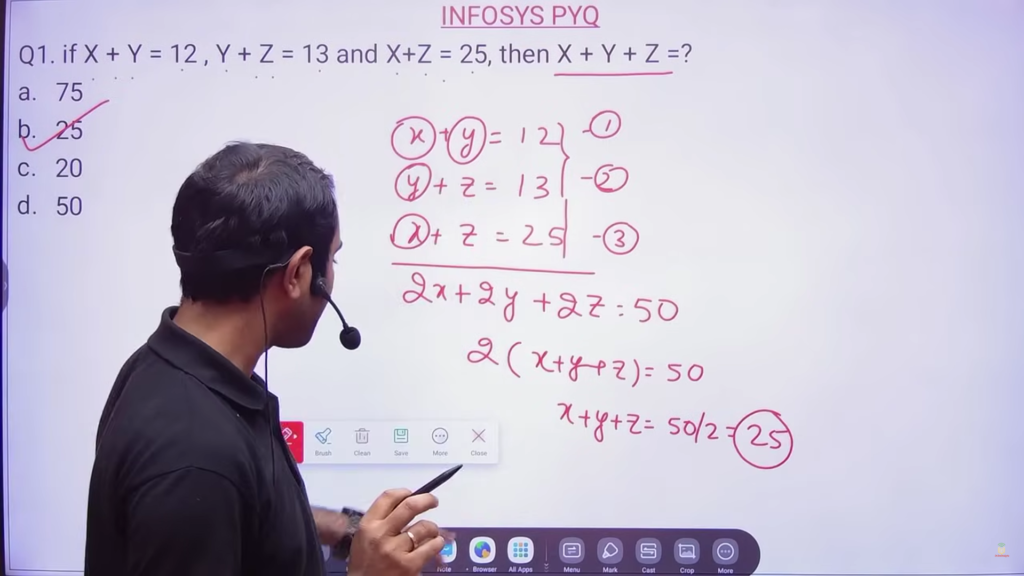 INFOSYS PYQ
Q1. if X + Y = 12 , Y + Z = 13 and X+Z = 25, then X + Y + Z =?
a. 75
b. 25
c. 20
d. 50
x + y = 12 - 1
y + z = 13 - 2
x + z = 25 - 3
2x+2y+2z = 50
2 (x+y+z) = 50
x+y+z = 50/2 = 25
Brush Clean Save More Close
Note Browser All Apps Menu Mark Cast Crop More